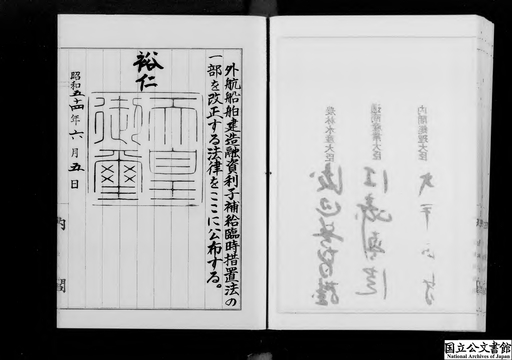 外航船舶建造融資利子補給臨時措置法の
一部を改正する法律をここに公布する。
裕仁
天皇
御璽
昭和五十四年六月五日
内閣
内閣総理大臣
通商産業大臣
農林水産大臣
国立公文書館
National Archives of Japan